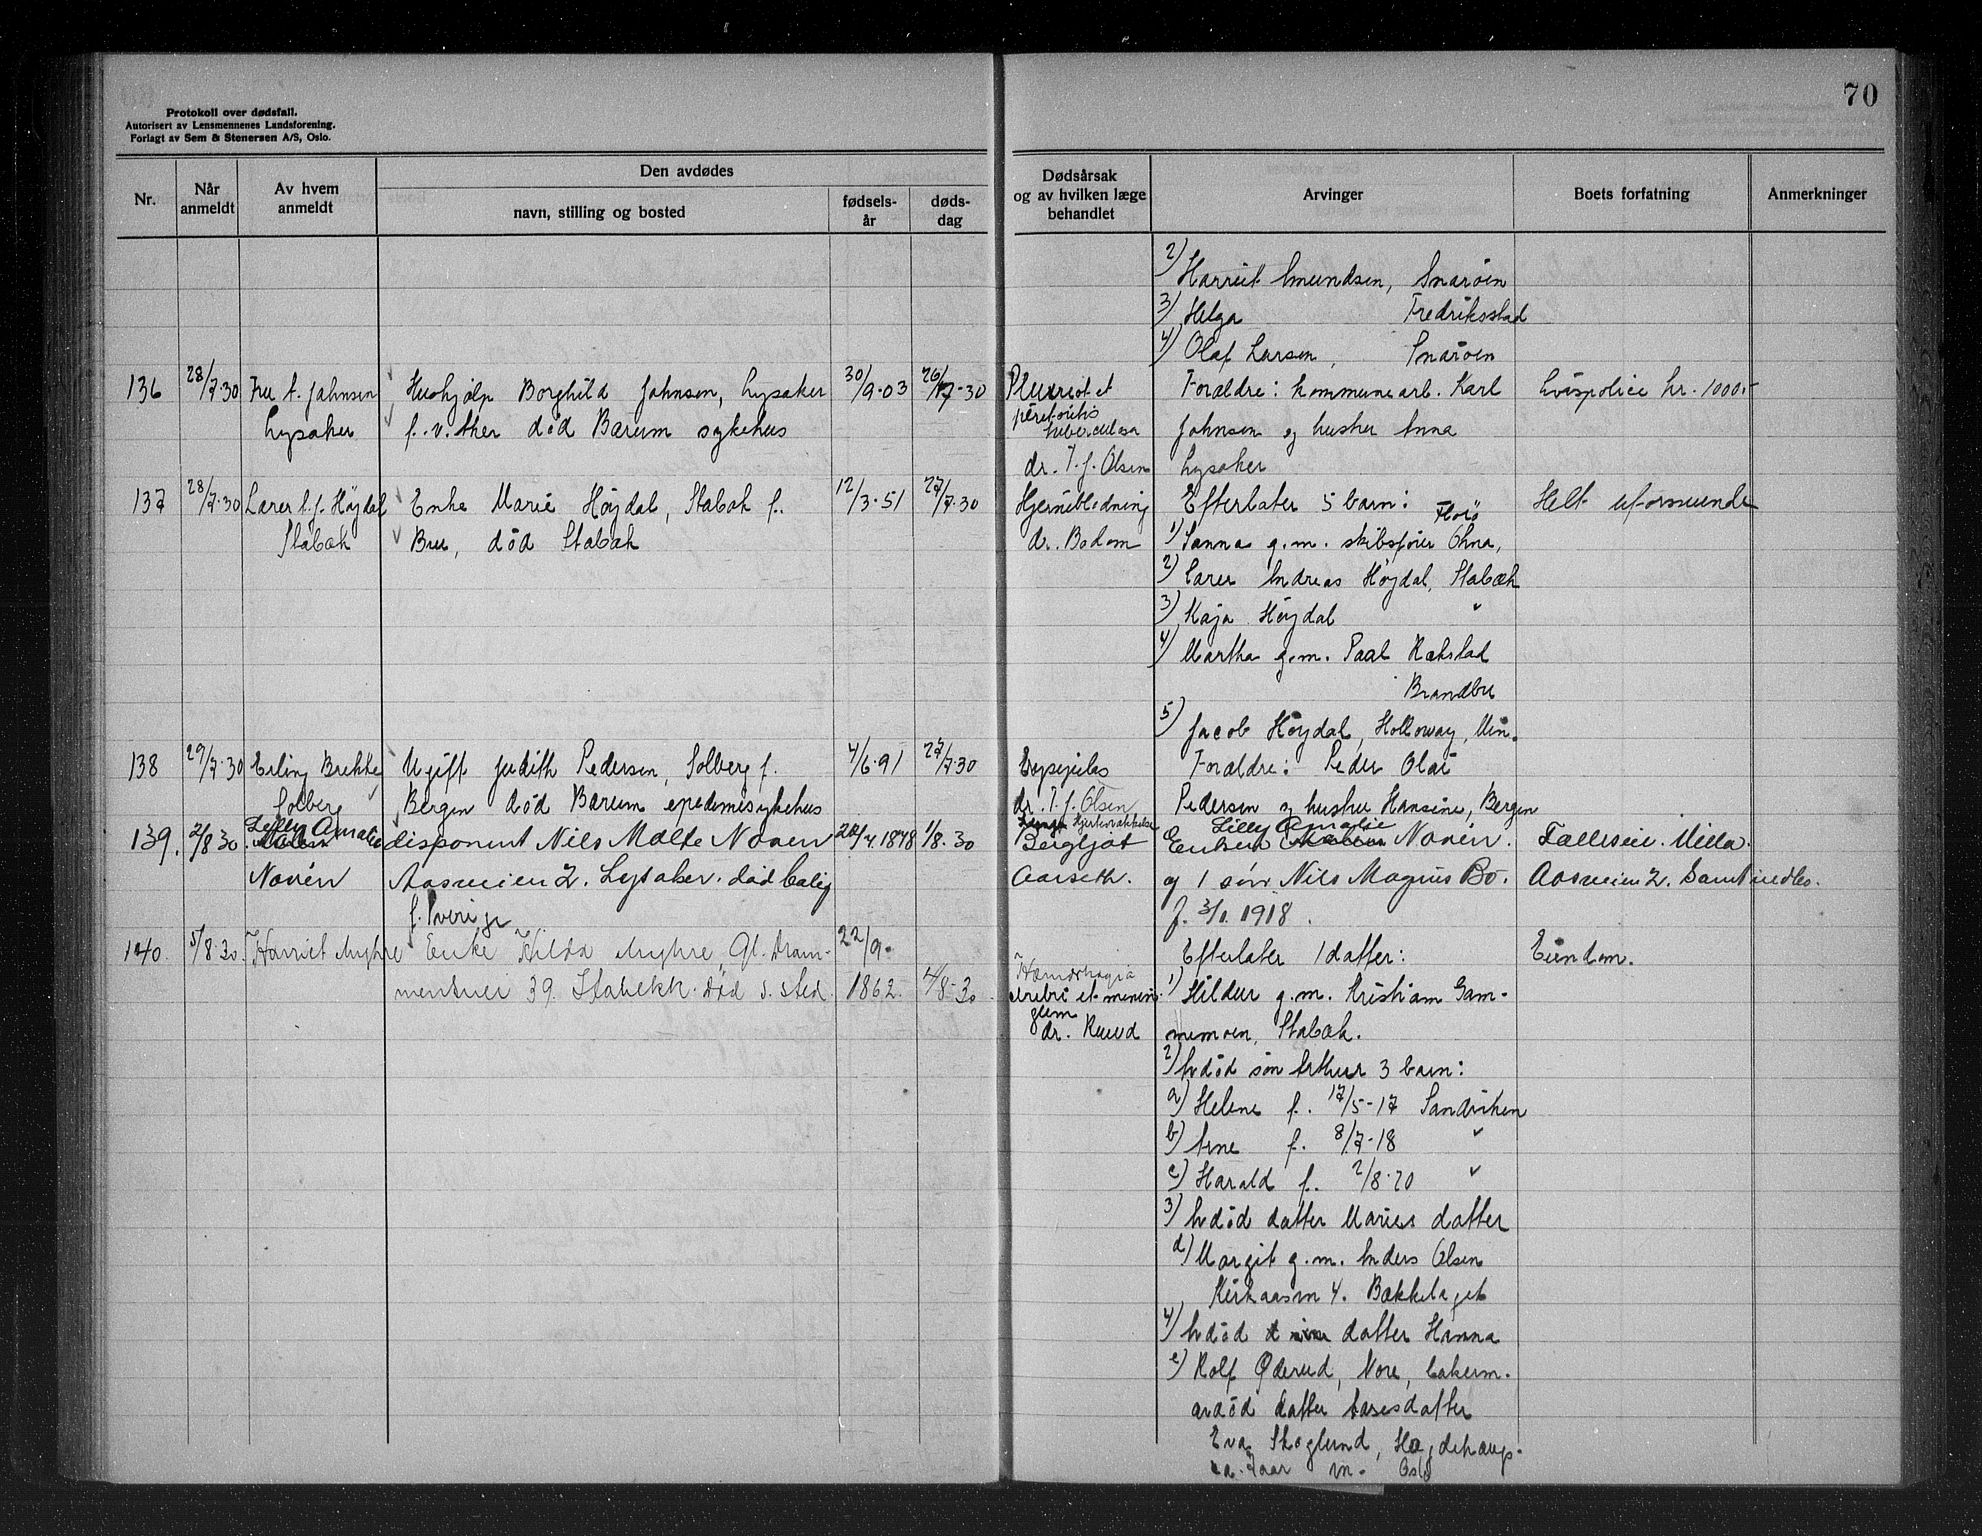 70
Protokoll over dødsfall.
Autorisert av Lensmennenes Landsforening.
Forlagt av Sem & Stenersen A/S, Oslo.
Nr.
Når anmeldt
Av hvem anmeldt
Den avdødes
navn, stilling og bosted
fødsels-år
døds-dag
Dødsårsak og av hvilken læge behandlet
Arvinger
Boets forfatning
Anmerkninger
2) Harriet Amundsen, Snarøen
3) Helga Fredriksstad
4) Olaf Larsen, Snarøen
136 28/7.30 Fru A. Johnsen Hushjelp Borghild Johnsen, Lysaker 30/9-03 26/7-30 Pleurit et Forældre: kommunearb. Karl Livspolice kr. 1000.-
Lysaker f. v. Aker död Bærum sykehus peretonitis
tuberculosa Johnsen og hustru Anna
dr. T. f. Olsen Lysaker
137 28/7.30 Lærer A. f. Höydal Enke Marie Höydal, Stabæk f. 12/3-51 27/7.30 Hjerneblödning Efterlater 5 barn: Helt uformuende
Florö
Stabæk Bru, död Stabæk dr. Bodom 1) Sanna g.m. skibsförer Ohna,
2) Lærer Andreas Höydal, Stabæk
3) Kaja Höydal "
4) Martha g.m. Paal Rækstad
Brandbu
5) Jacob Höydal, Holloway, Min.
138 29/7.30 Erling Brekke, Ugift Judith Pedersen, Solberg f. 4/6-91 27/7.30 Erysipelas Forældre: Peder Olai
Solberg Bergen död Bærum epedemisykehus dr. T. f. Olsen Pedersen og hustru Hansine, Bergen
Lilly Amalie Hjertesvækkelse Lilly Amalie
139. 2/8 30 disponent Nils Malte Norén 24/4.1878 1/8.30 Bergljot Enken Norén. Fælleseie. Villa
Norén Aasveien 2. Lysaker. död bolig Aarseth. og 1 sön Nils Magnus Bo. Aasveien 2. Samt indbo.
f. Sverige f. 3/1.1918.
140. 5/8.30 Harriet Myhre Enke Hilda Myhre, Gl. Dram- 22/9- Efterlater 1 datter: Eiendom.
mensvei 39. Stabekk. Död s. sted. 1862. 4/8-30 Hæmorhagia
cerebri et menin- 1) Hildur g.m. Kristian Gam-
gium
dr. Ruud memoen, Stabæk.
2) Avdöd sön Arthur 3 barn:
a) Helene f. 17/5-17 Sandviken
b) Arne f. 8/7-18 "
c) Harald f. 2/8-20 "
3) Avdöd datter Maries datter
d) Margit g.m. Anders Olsen
Kirkaasvn 4. Bækkelaget
4) Avdöd datter Hanna
e) Rolf Øderud, Nore,
avdöd datter Aases datter
Eva Skoglund, Hegdehaugs-
vn. Oslo